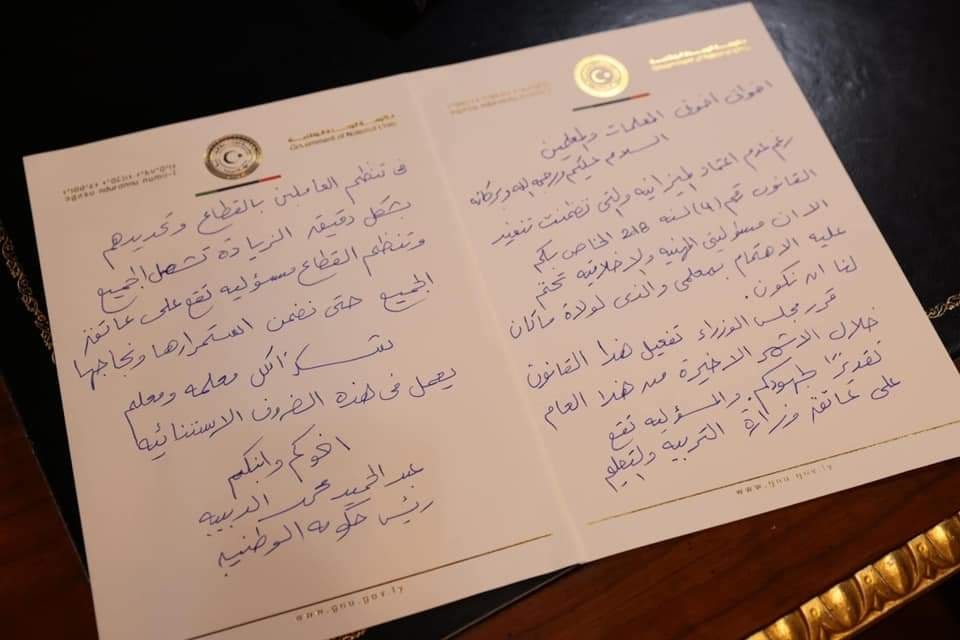 حكومة الوحدة الوطنية
Government of National Unity
اخواتي اخوتي المعلمات والمعلمين
السلام عليكم ورحمة الله وبركاته
رغم عدم اعتماد الميزانيه ولتي تضمنت تنفيذ
القانون رقم (9) لسنة 2018 الخاص بكم
الا ان مسئوليتي المهنيه والاخلاقيه تحتم
عليه الاهتمام بمعلمي والذى لولاة ماكان
لنا ان نكون.
قرر مجلس الوزراء تفعيل هذا القانون
خلال الاشهر الاخيرة من هذا العام
تقديرًا لجهودكم. والمسؤليه تقع
على عاتق وزارة التربية ولتعليم
www.gnu.gov.ly
Government of National Unity
فى تنظيم العاملين بالقطاع وتحديدهم
بشكل دقيق الزيادة تشمل الجميع
وتنظم القطاع مسؤوليه تقع على عاتق
الجميع حتى نضمن استمرارها ونجاحها
شكرًا لكل معلمه ومعلم
يعمل فى هذه الضروف الاستثنائيه
اخوكم وابنكم
عبدالحميد محمد الدبيبه
رئيس حكومه الوطنيه
www.gnu.gov.ly